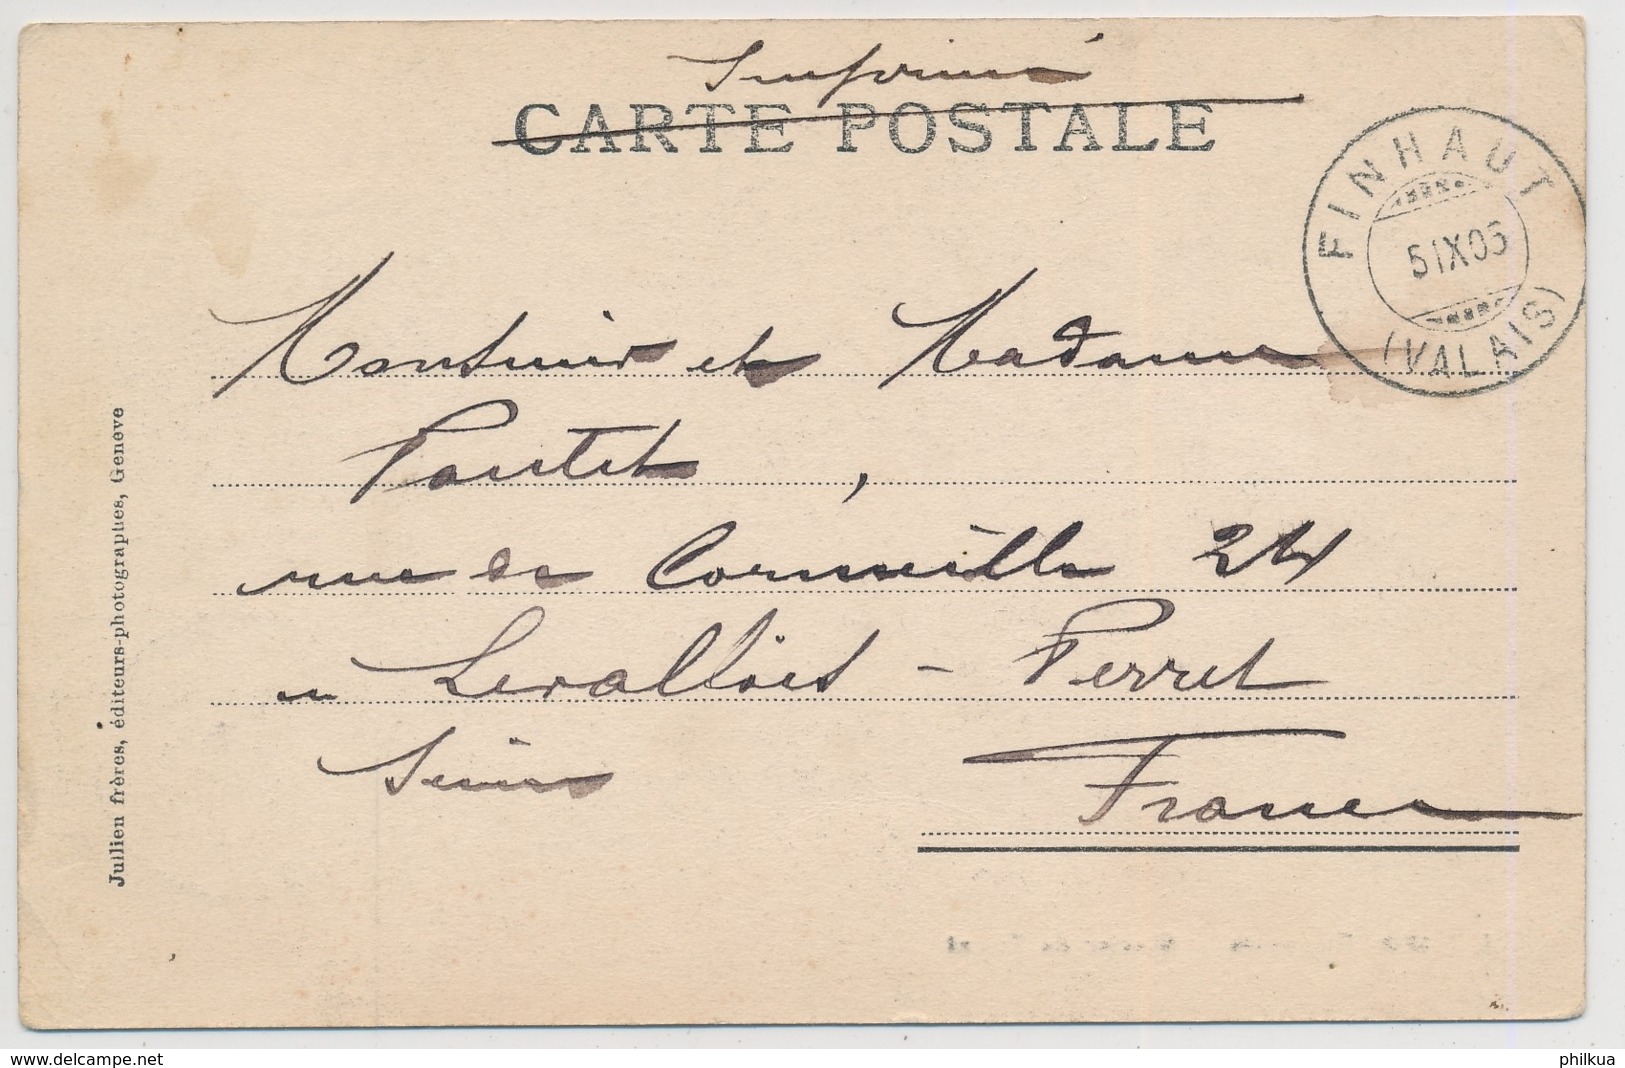 Imprimé
CARTE POSTALE
FINHAUT
5 IX 05
(VALAIS)
Monsieur et Madame
Pautet,
rue de Corneille 24
à Levallois - Perret
Seine
France
Jullien frères, éditeurs-photographes, Genève
www.delcampe.net
philkua